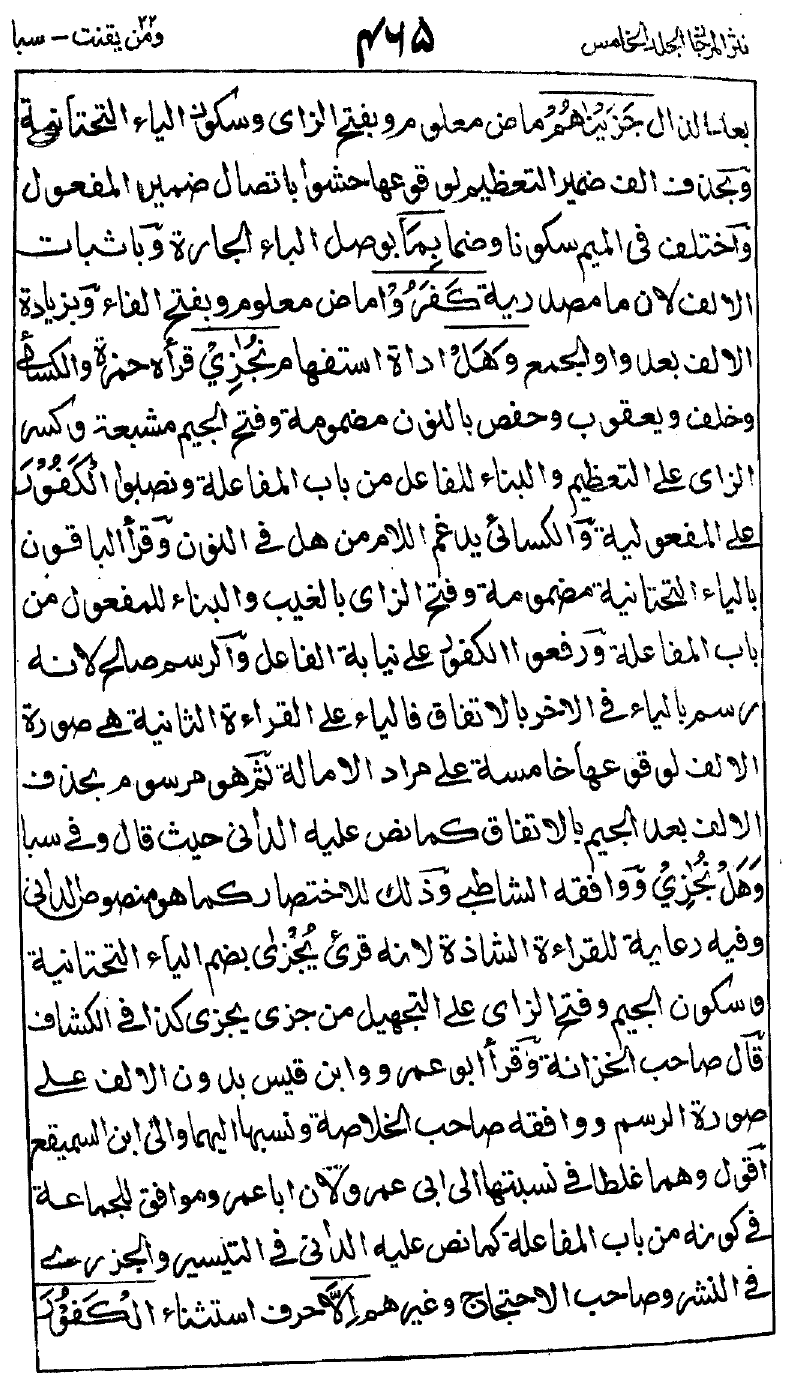 نثر المرجان المجلد الخامس ٤٦٥ ومن يقنت ٢٢ - سبا
بعد الذال جَزَيْنٰهُمْ ماض معلوم وبفتح الزاى وسكون الياء التحتانية
وبحذف الف ضمير التعظيم لوقوعها حشوا باتصال ضمير المفعول
واختلف فى الميم سكونا وضما بِمَا بوصل الباء الجارة وباثبات
الالف لان ما مصدرية كَفَرُوْا ماض معلوم وبفتح الفاء وبزيادة
الالف بعد واو الجمع وَهَلْ اداة استفهام نُجٰزِيْ قرأه حمزة والكسائى
وخلف ويعقوب وحفص بالنون مضمومة وفتح الجيم مشبعة وكسر
الزاى على التعظيم والبناء للفاعل من باب المفاعلة ونصبوا الْكَفُوْرَ
على المفعولية والكسائى يدغم اللام من هل فى النون وقرأ الباقون
بالياء التحتانية مضمومة وفتح الزاى بالغيب والبناء للمفعول من
باب المفاعلة ورفعوا الكفور على نيابة الفاعل والرسم صالح لانه
رسم بالياء فى الاخر بالاتفاق فالياء على القراءة الثانية هى صورة
الالف لوقوعها خامسة على مراد الامالة ثم هو مرسوم بحذف
الالف بعد الجيم بالاتفاق كما نص عليه الدانى حيث قال وفى سبا
وَهَلْ نُجٰزِيْ ووافقه الشاطبى وذلك للاختصار كما هو منصوص الدانى
وفيه رعاية للقراءة الشاذة لانه قرئ يُجْزٰى بضم الياء التحتانية
وسكون الجيم وفتح الزاى على التجهيل من جزى يجزى كذا فى الكشاف
قال صاحب الخزانة وقرأ ابو عمرو وابن قيس بدون الالف على
صورة الرسم ووافقه صاحب الخلاصة ونسبها اليهما والى ابن السميقع
اقول وهما غلطا فى نسبتها الى ابى عمرو لان ابا عمرو موافق للجماعة
فى كونه من باب المفاعلة كما نص عليه الدانى فى التيسير والجزرى
فى النشر وصاحب الاحتجاج وغيرهم اِلَّا حرف استثناء الْكَفُوْرَ